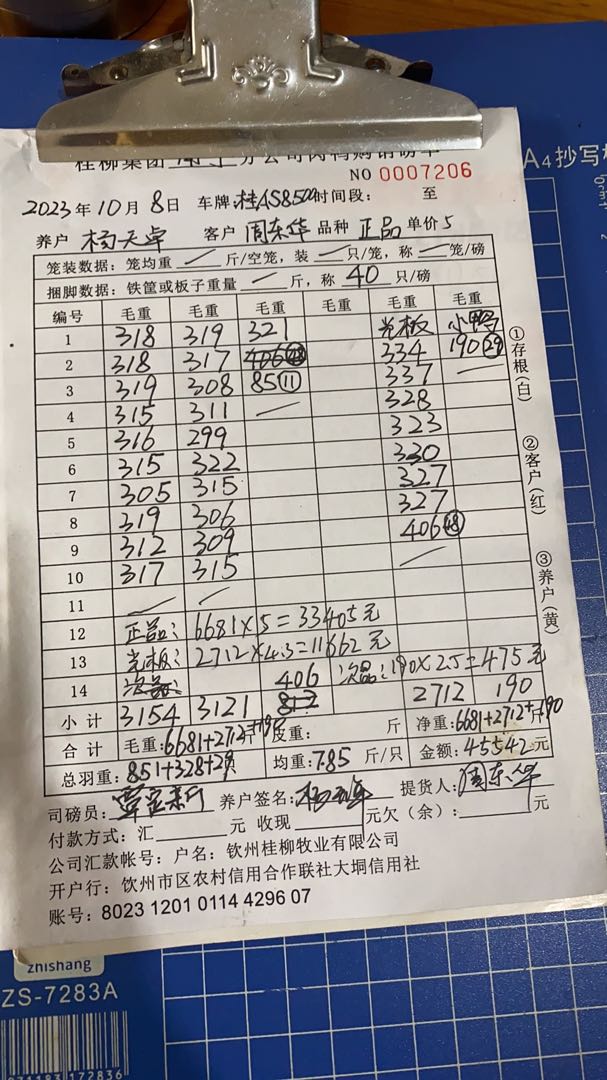 桂柳集团南宁分公司肉鸭购销磅单
NO 0007206
A4抄写板
2023年10月8日 车牌:桂AS8500时间段: 至
养户 杨天卓 客户 周东华 品种 正品 单价 5
笼装数据：笼均重 斤/空笼，装 只/笼，称 笼/磅
捆脚数据：铁筐或板子重量 斤，称 40 只/磅
编号 毛重 毛重 毛重 毛重 毛重 毛重
1 318 319 321 光板 小鸭
2 318 317 406 48 334 190 29
3 319 308 85 11 337
4 315 311 328
5 316 299 323
6 315 322 330
7 305 315 327
8 319 306 327
9 312 309 406 48
10 317 315
11
12 正品: 6681×5=33405元
13 光板: 2712×4.3=11662元
14 次品: 406 次品:190×2.5=475元
小计 3154 3121 812 2712 190
合计 毛重:6681+2712+190斤 皮重: 斤 净重:6681+2712+190斤
总羽重:851+328+29 均重:7.85 斤/只 金额:45542元
司磅员: 养户签名: 提货人:周东华
付款方式：汇 元 收现 元欠（余）: 元
公司汇款帐号：户名：钦州桂柳牧业有限公司
开户行：钦州市区农村信用合作联社大垌信用社
账号：8023 1201 0114 4296 07
①存根(白)
②客户(红)
③养户(黄)
zhishang
ZS-7283A
971183 172836